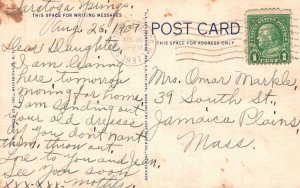 Saratoga Springs.
THIS SPACE FOR WRITING MESSAGES
Aug. 26, 1937
POST CARD
THIS SPACE FOR ADDRESS ONLY
Dear Daughter,
I am leaving
here tomorrow
morning for home.
am sending out
your old dresses
if you don't want
them, throw out.
Love to you and
See you soon
Mother
xxxxxx
Mrs. Omar Markle,
39 South St.,
Jamaica Plains
Mass.
1